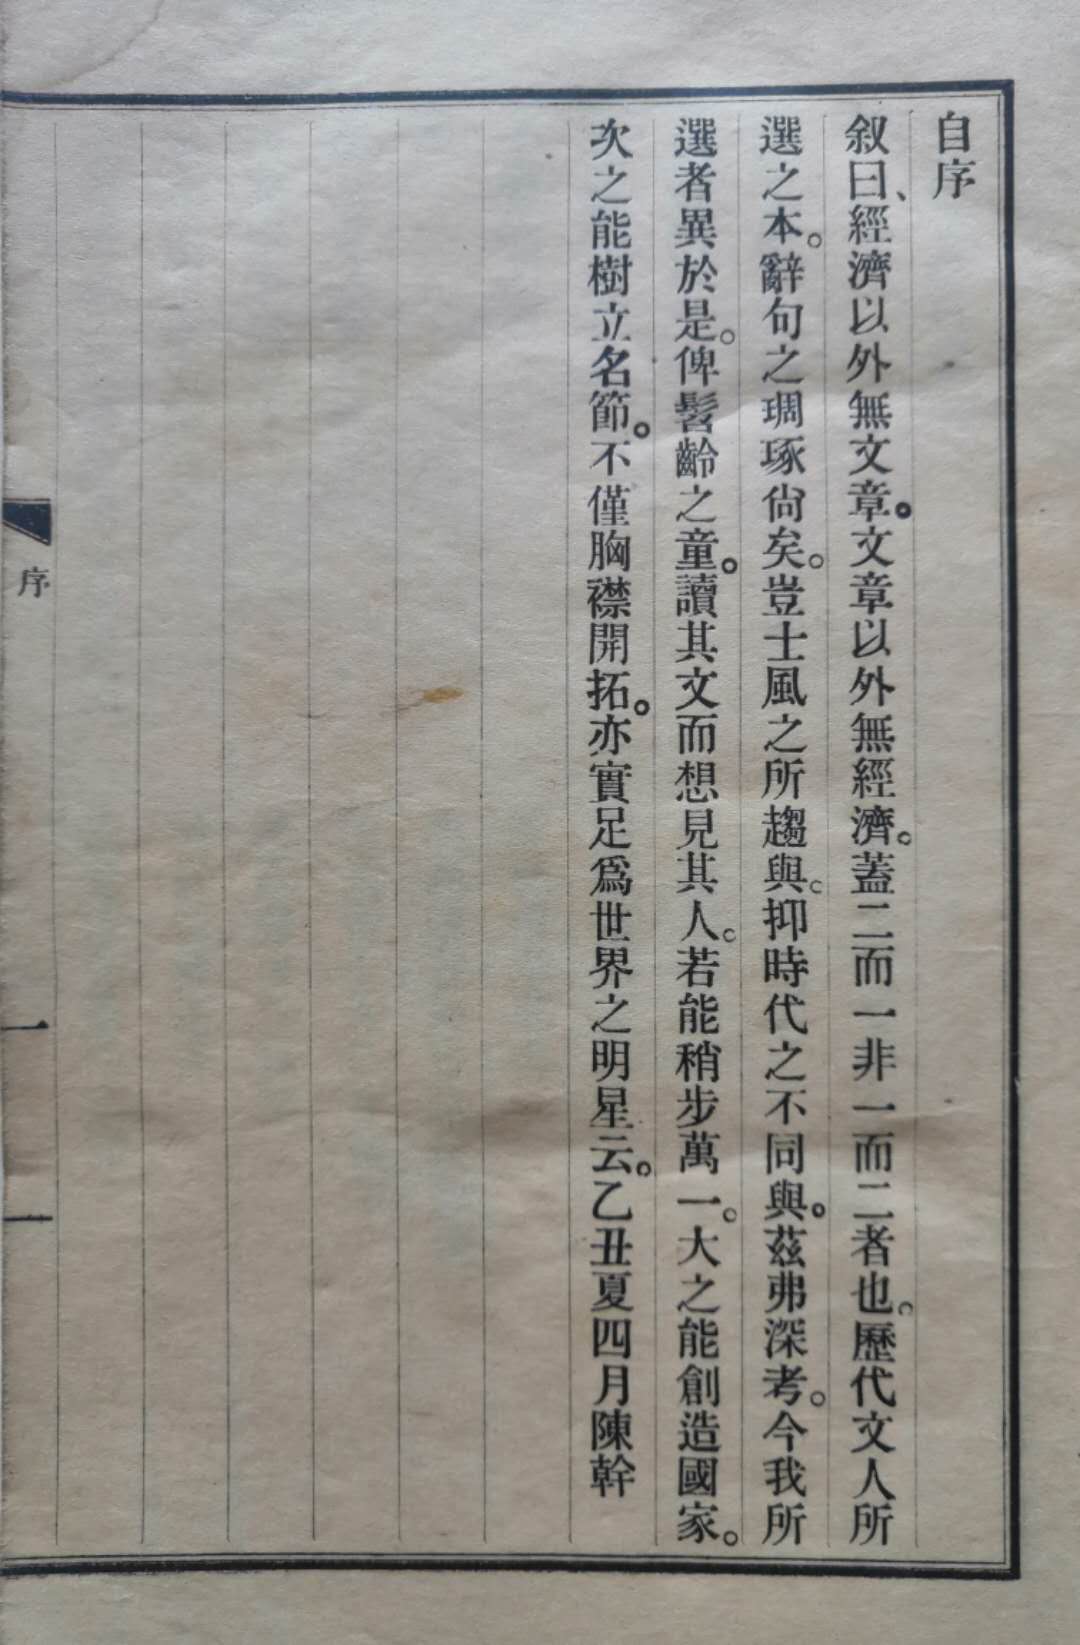 自序
叙曰、經濟以外無文章。文章以外無經濟。蓋二而一非一而二者也。歷代文人所
選之本。辭句之琱琢尙矣。豈士風之所趨與。抑時代之不同與。茲弗深考。今我所
選者異於是。俾髫齡之童。讀其文而想見其人。若能稍步萬一。大之能創造國家。
次之能樹立名節。不僅胸襟開拓。亦實足爲世界之明星云。乙丑夏四月陳幹
序
一
一